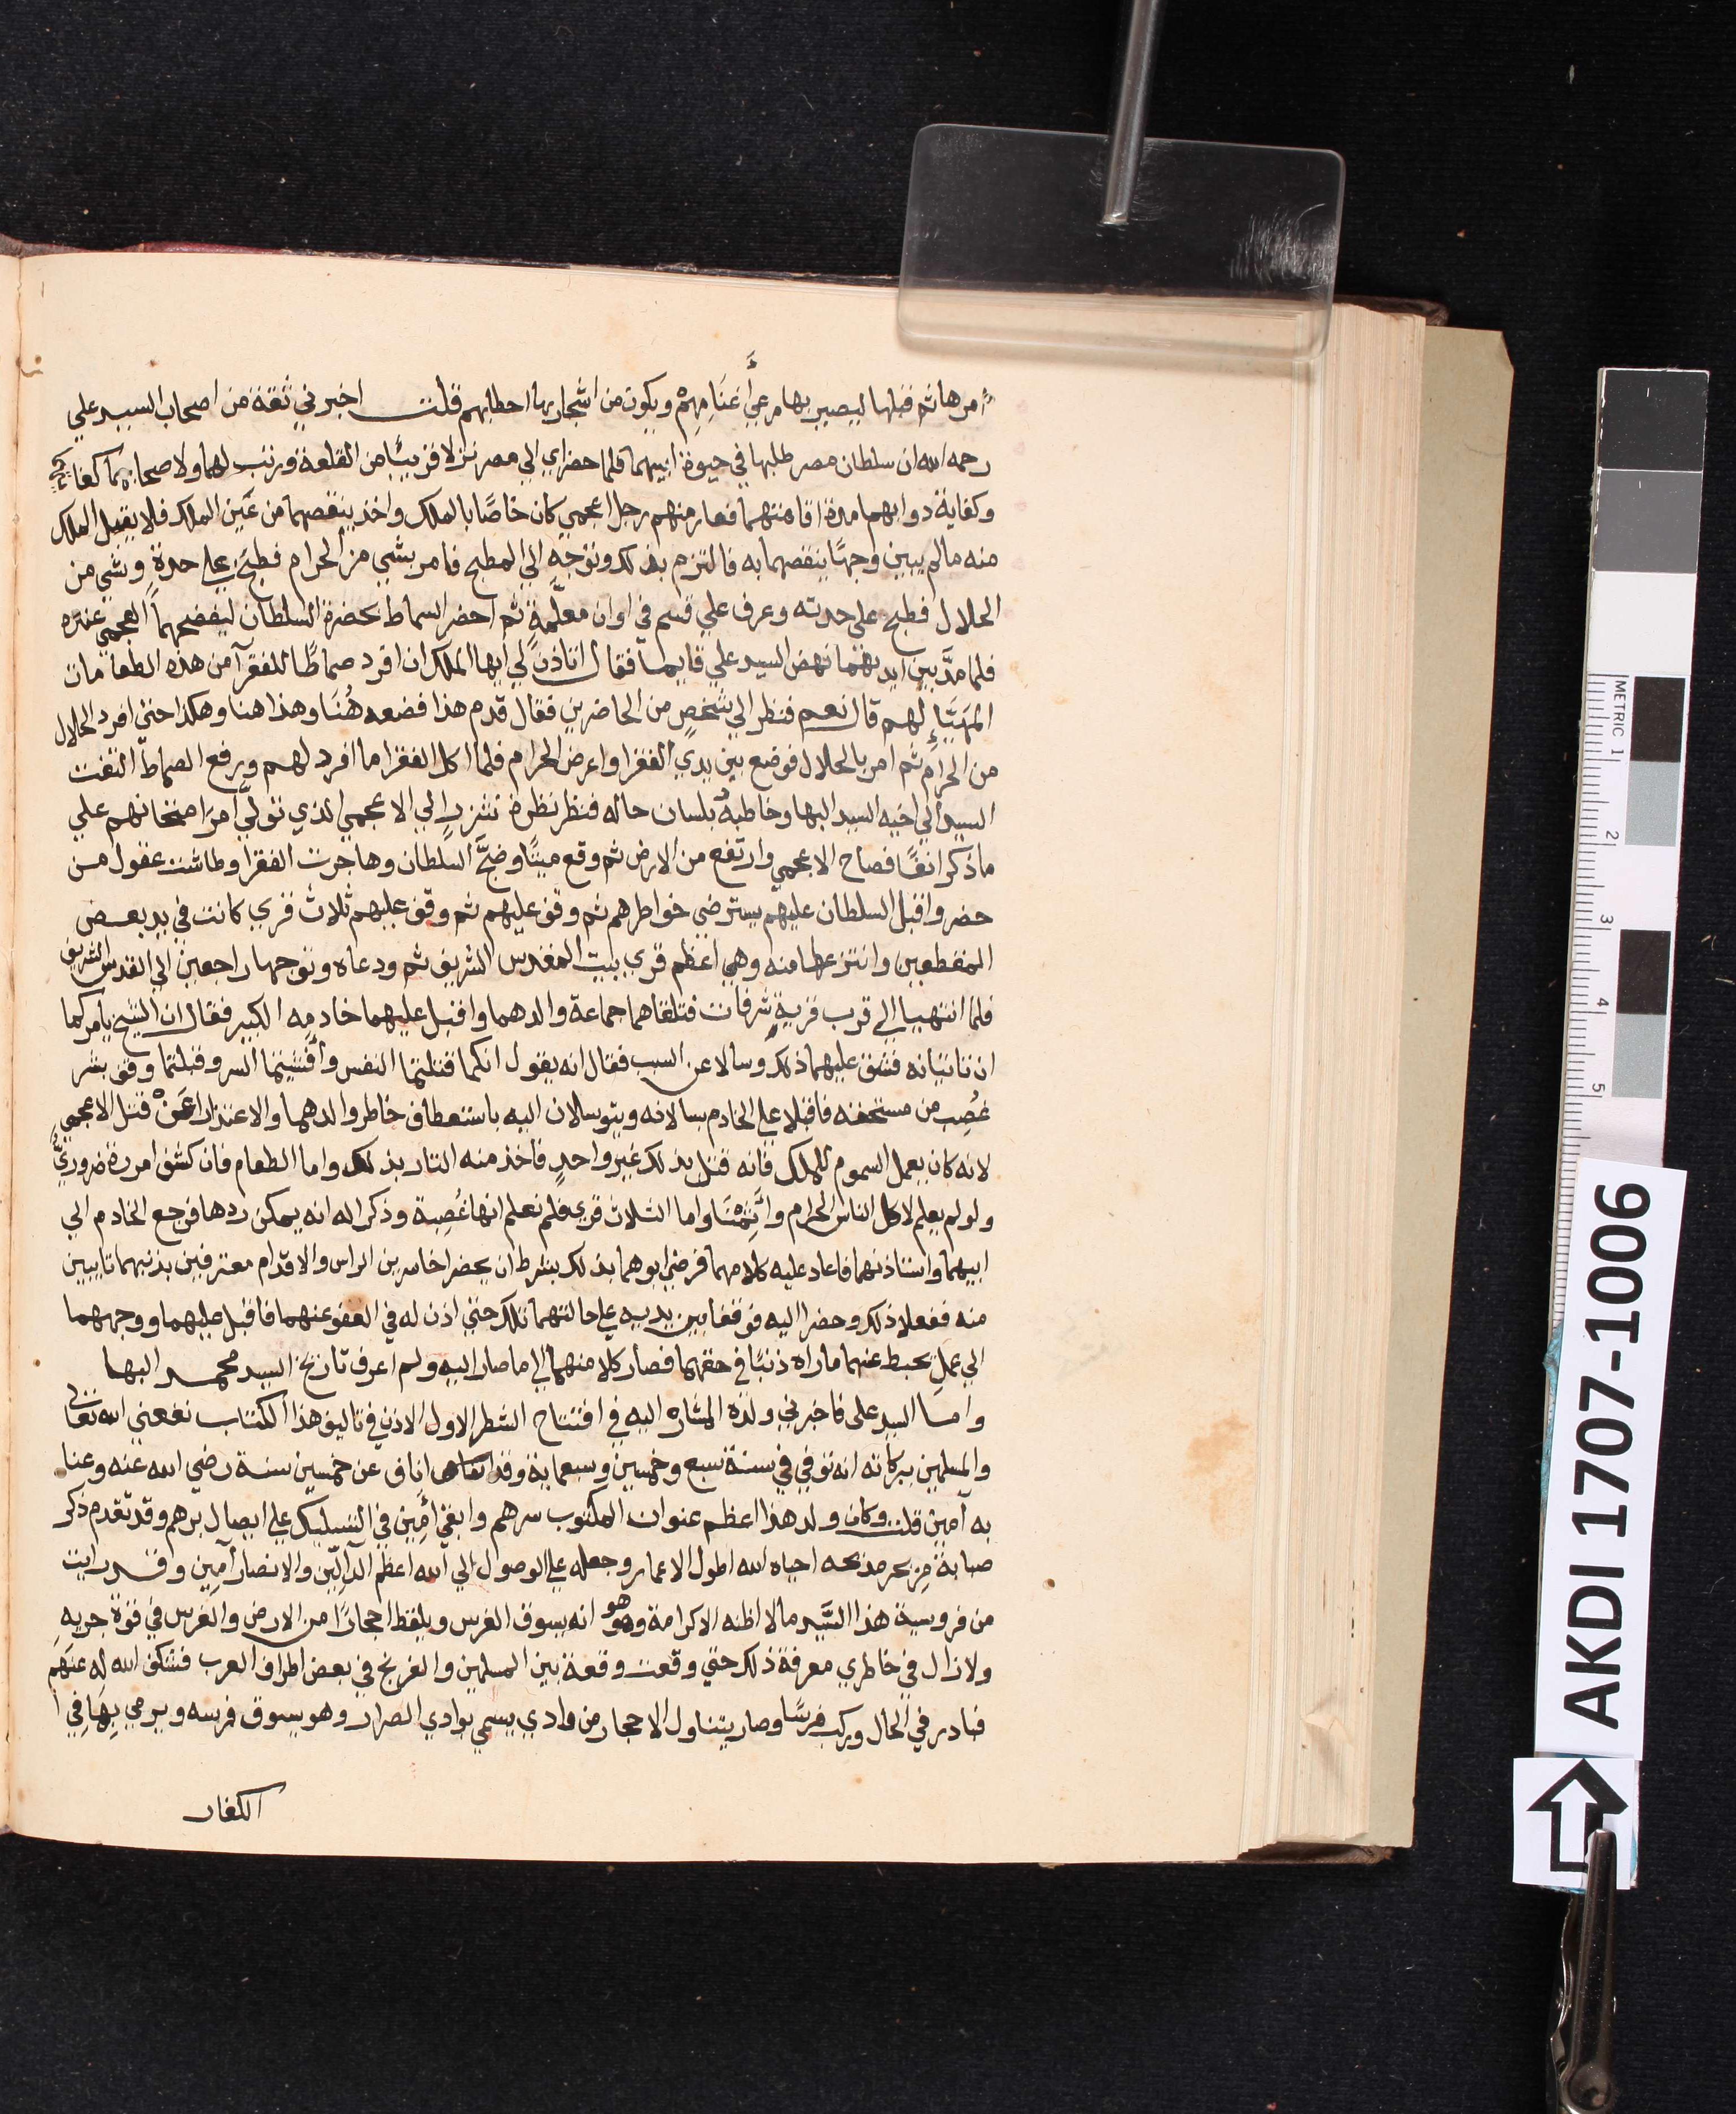 امرها ثم قبلها ليصير بها مرعي أغنَامِهِمْ ويكون من اشجار بها احطابهم قلت اخبرني ثقة من اصحاب السيد علي
رحمه الله ان سلطان مصر طلبها في حيوة ابيهما فلما حضرا الي مصر نزلا قريبًا من القلعة ورتب لهما ولاصحابهما كفاية
وكفاية دوابهم مدة اقامتهما فغار منهم رجل اعجمي كان خاصًا بالملك واخذ ينقصهما من عَين الملك فلا يقبل الملك
منه مالم يبين وجهًا ينقصهما به فالتزم بذلك وتوجه الي المطبح فامر بشي من الحرام فطبخ علي حدة وشي من
الحلال فطبخ علي حدته وعرف علي قسم في اوان معلّمةٍ ثم احضر السماط بحضرة السلطان ليفضحهما العجمي عنده
فلما مدَّ بين ايديهما نهض السيد علي قايما فقال اتاذن لي ايها الملك ان افرد صماطًا للفقرآ من هذه الطعامات
المهيَّإ لهم قال نعم فنظر الي شخصٍ من الحاضرين فقال قدم هذا فضعه هُنَا وهذا هنا وهكذا حتي افرد الحلال
من الحرام ثم امر بالحلال فوضع بين يدي الفقرا واعرض الحرام فلما اكل الفقرا ما افرد لهم ورفع الصماط التفت
السيد الي اخيه السيد البها وخاطبهُ بلسان حاله فنظر نظرة شزرٍ الي الاعجمي الذي تولي امرَ امتحانهم علي
ما ذكر انفًا فصاح الاعجمي وارتفع من الارض ثم وقع ميتًا وضجَّ السلطان وهاجرت الفقرا وطاشت عقول من
حضر واقبل السلطان عليهم يسترضي خواطرهم ثم وقف عليهم ثم وقف عليهم ثلاث قري كانت في يد بعض
المقطعين وانتزعها منه وهي اعظم قري بيت المقدس الشريف ثم ودعاه وتوجها راجعين الي القدس الشريف
فلما انتهيا الي قرب قرية شرفات فتلقاهما جماعة والدهما واقبل عليهما خادمه الكبير فقال ان الشيخ يامركما
ان تاتيانه فشق عليهما ذلك وسالا عن السبب فقال انه يقول انكما قتلتما النفس وأفشيتما السر وقبلتما وقف بشر
غُصِب من مستحقه فاقبلا علي الخادم يسالانه ويتوسلان اليه باستعطاف خاطر والدهما والاعتذار عَنْ قتل الاعجمي
لانه كان يعمل السموم للملك فانه قتل بذلك غير واحدٍ فاخذ منه الثار بذلك واما الطعام فان كشف امره ضروريٌّ
ولو لم يعلم لاكل الناس الحرام وأثِمْنَا واما الثلاث قري فلم نعلم انها غُصِبة وذكرا له انه يمكن ردها فرجع الخادم الي
ابيهما واستاذنهما فاعاد عليه كلامهما فرضي ابوهما بذلك بشرط ان يحضرا خاسرين الراس والاقدام معترفين بذنبهما تايبين
منه ففعلا ذلك وحضرا اليه فوقفا بين يديه علي حالتهما تلك حتي اذن له في العفو عنهما فاقبل عليهما ووجههما
الي عمل يحبط عنهما ماراه ذنبًا في حقهما فصار كلا منهما الي ما صار اليه ولم اعرف تاريخ السيد محمد البها
واما السيد علي فاخبرني ولدهُ المشار اليه في افتتاح الشطر الاول الاذن في تاليف هذا الكتاب نفعني الله تعالي
والمسلمين ببركاته انه توفي في سنة سبع وخمسين وسبعماية وقد اناف عن خمسين سنة رضي الله عنه وعنا
به آمين قلت وكان ولد هذا اعظم عنوان المكتوب سرهم وابقي أمِين في التسليك علي ايصال برهم وقد تقدم ذكر
صبابة من بحر مدحه احياه الله اطول الاعمار وجعله علي الوصول الي الله اعظم الدآلّين والانصار آمين وقد رايت
من فروسية هذا السَّيد مالا اظنه الا كرامة وهو انه يسوق الفرس ويلقط احجارًا من الارض والفرس في قوة جريه
ولازال في خاطري معرفة ذلك حتي وقعت وقعة بين المسلمين والفرنج في بعض اطراف العرب فشكف الله له عنهم
فبادر في الحال وركب فرسًا وصار يتناول الاحجار من وادي يسمي بوادي الصرار وهو يسوق فرسه ويرمي بِهَا في
الكفار
METRIC 1 2 3 4 5
AKDI 1707-1006